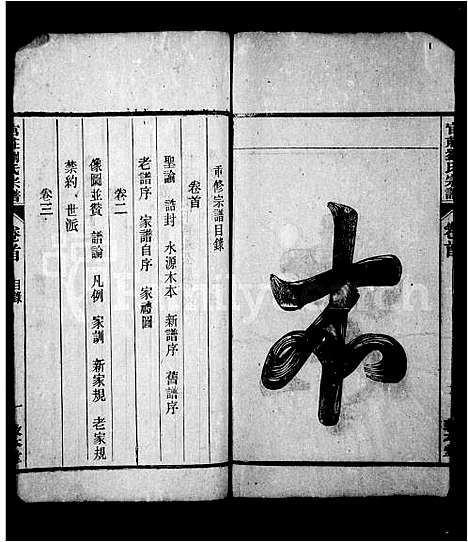 本
重修宗譜目錄
卷首
聖諭 誥封 水源木本 新譜序 舊譜序
老譜序 家譜自序 家禮圖
卷二
像圖並贊 譜論 凡例 家訓 新家規 老家規
禁約 世派
卷三
氏宗譜 卷首 目錄 一